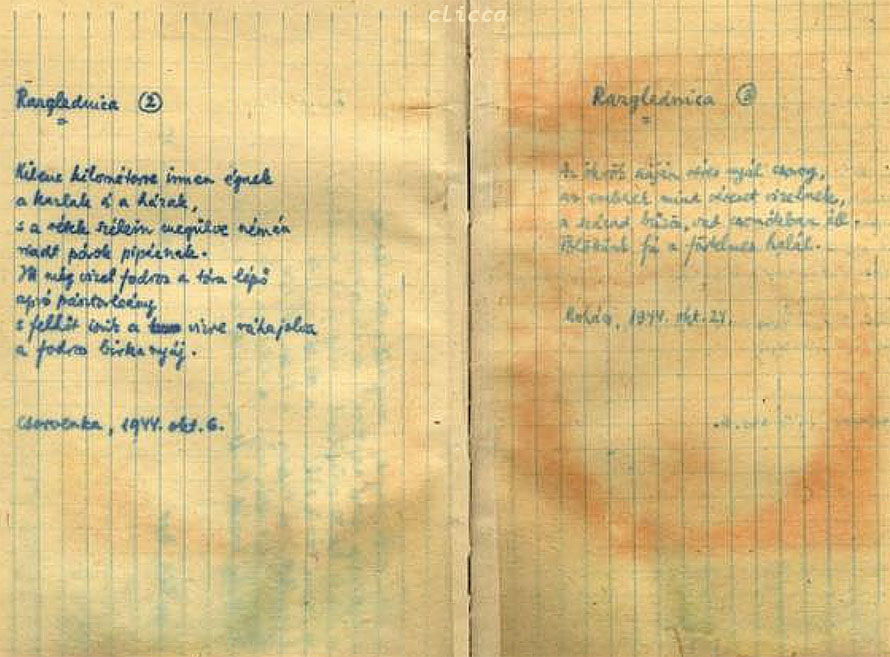 clicca
Razglednica (2)
Kilenc kilométerre innen égnek
a kazlak és a házak,
s a rétek szélein megülve némán
riadt pórok pipáznak.
Itt még vizet fodroz a tóra lépő
apró pásztorleány
s felhőt iszik a vizre ráhajolva
a fodros birkanyáj.
Cservenka, 1944. okt. 6.
Razglednica (3)
Az ökrök száján véres nyál csorog,
az emberek mind véreset vizelnek,
a század bűzös, vad csomókban áll.
Fölöttünk fú a förtelmes halál.
Mohács, 1944. okt. 24.